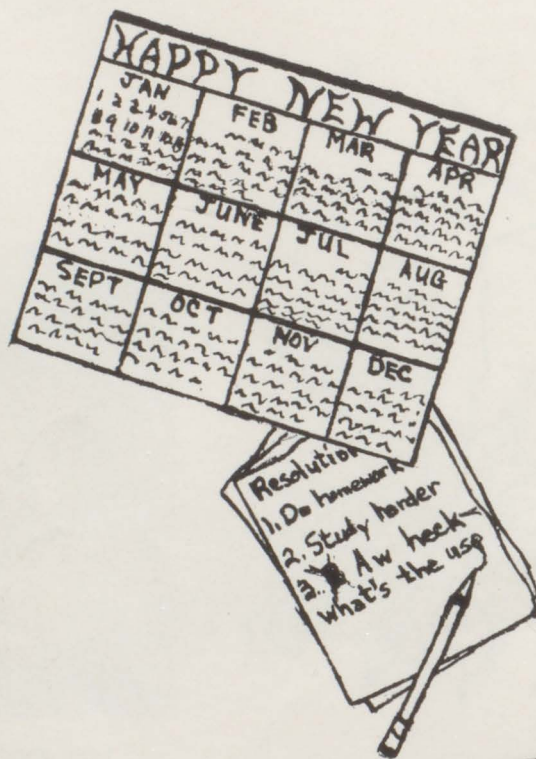 HAPPY NEW YEAR
JAN
FEB
MAR
APR
MAY
JUNE
JUL
AUG
SEPT
OCT
NOV
DEC
Resolution
1. Do homework
2. Study harder
3. Aw heck—
what's the use